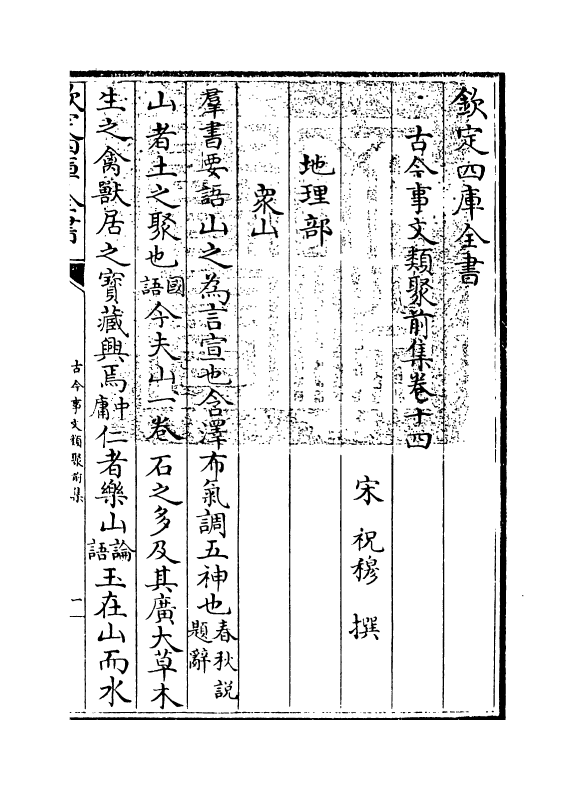 欽定四庫全書
古今事文類聚前集卷十四
宋 祝穆 撰
地理部
衆山
羣書要語山之為言宣也含澤布氣調五神也春秋説題辭
山者土之聚也國語今夫山一卷石之多及其廣大草木
生之禽獸居之寳藏興焉中庸仁者樂山論語玉在山而水
欽定四庫全書
古今事文類聚前集
一